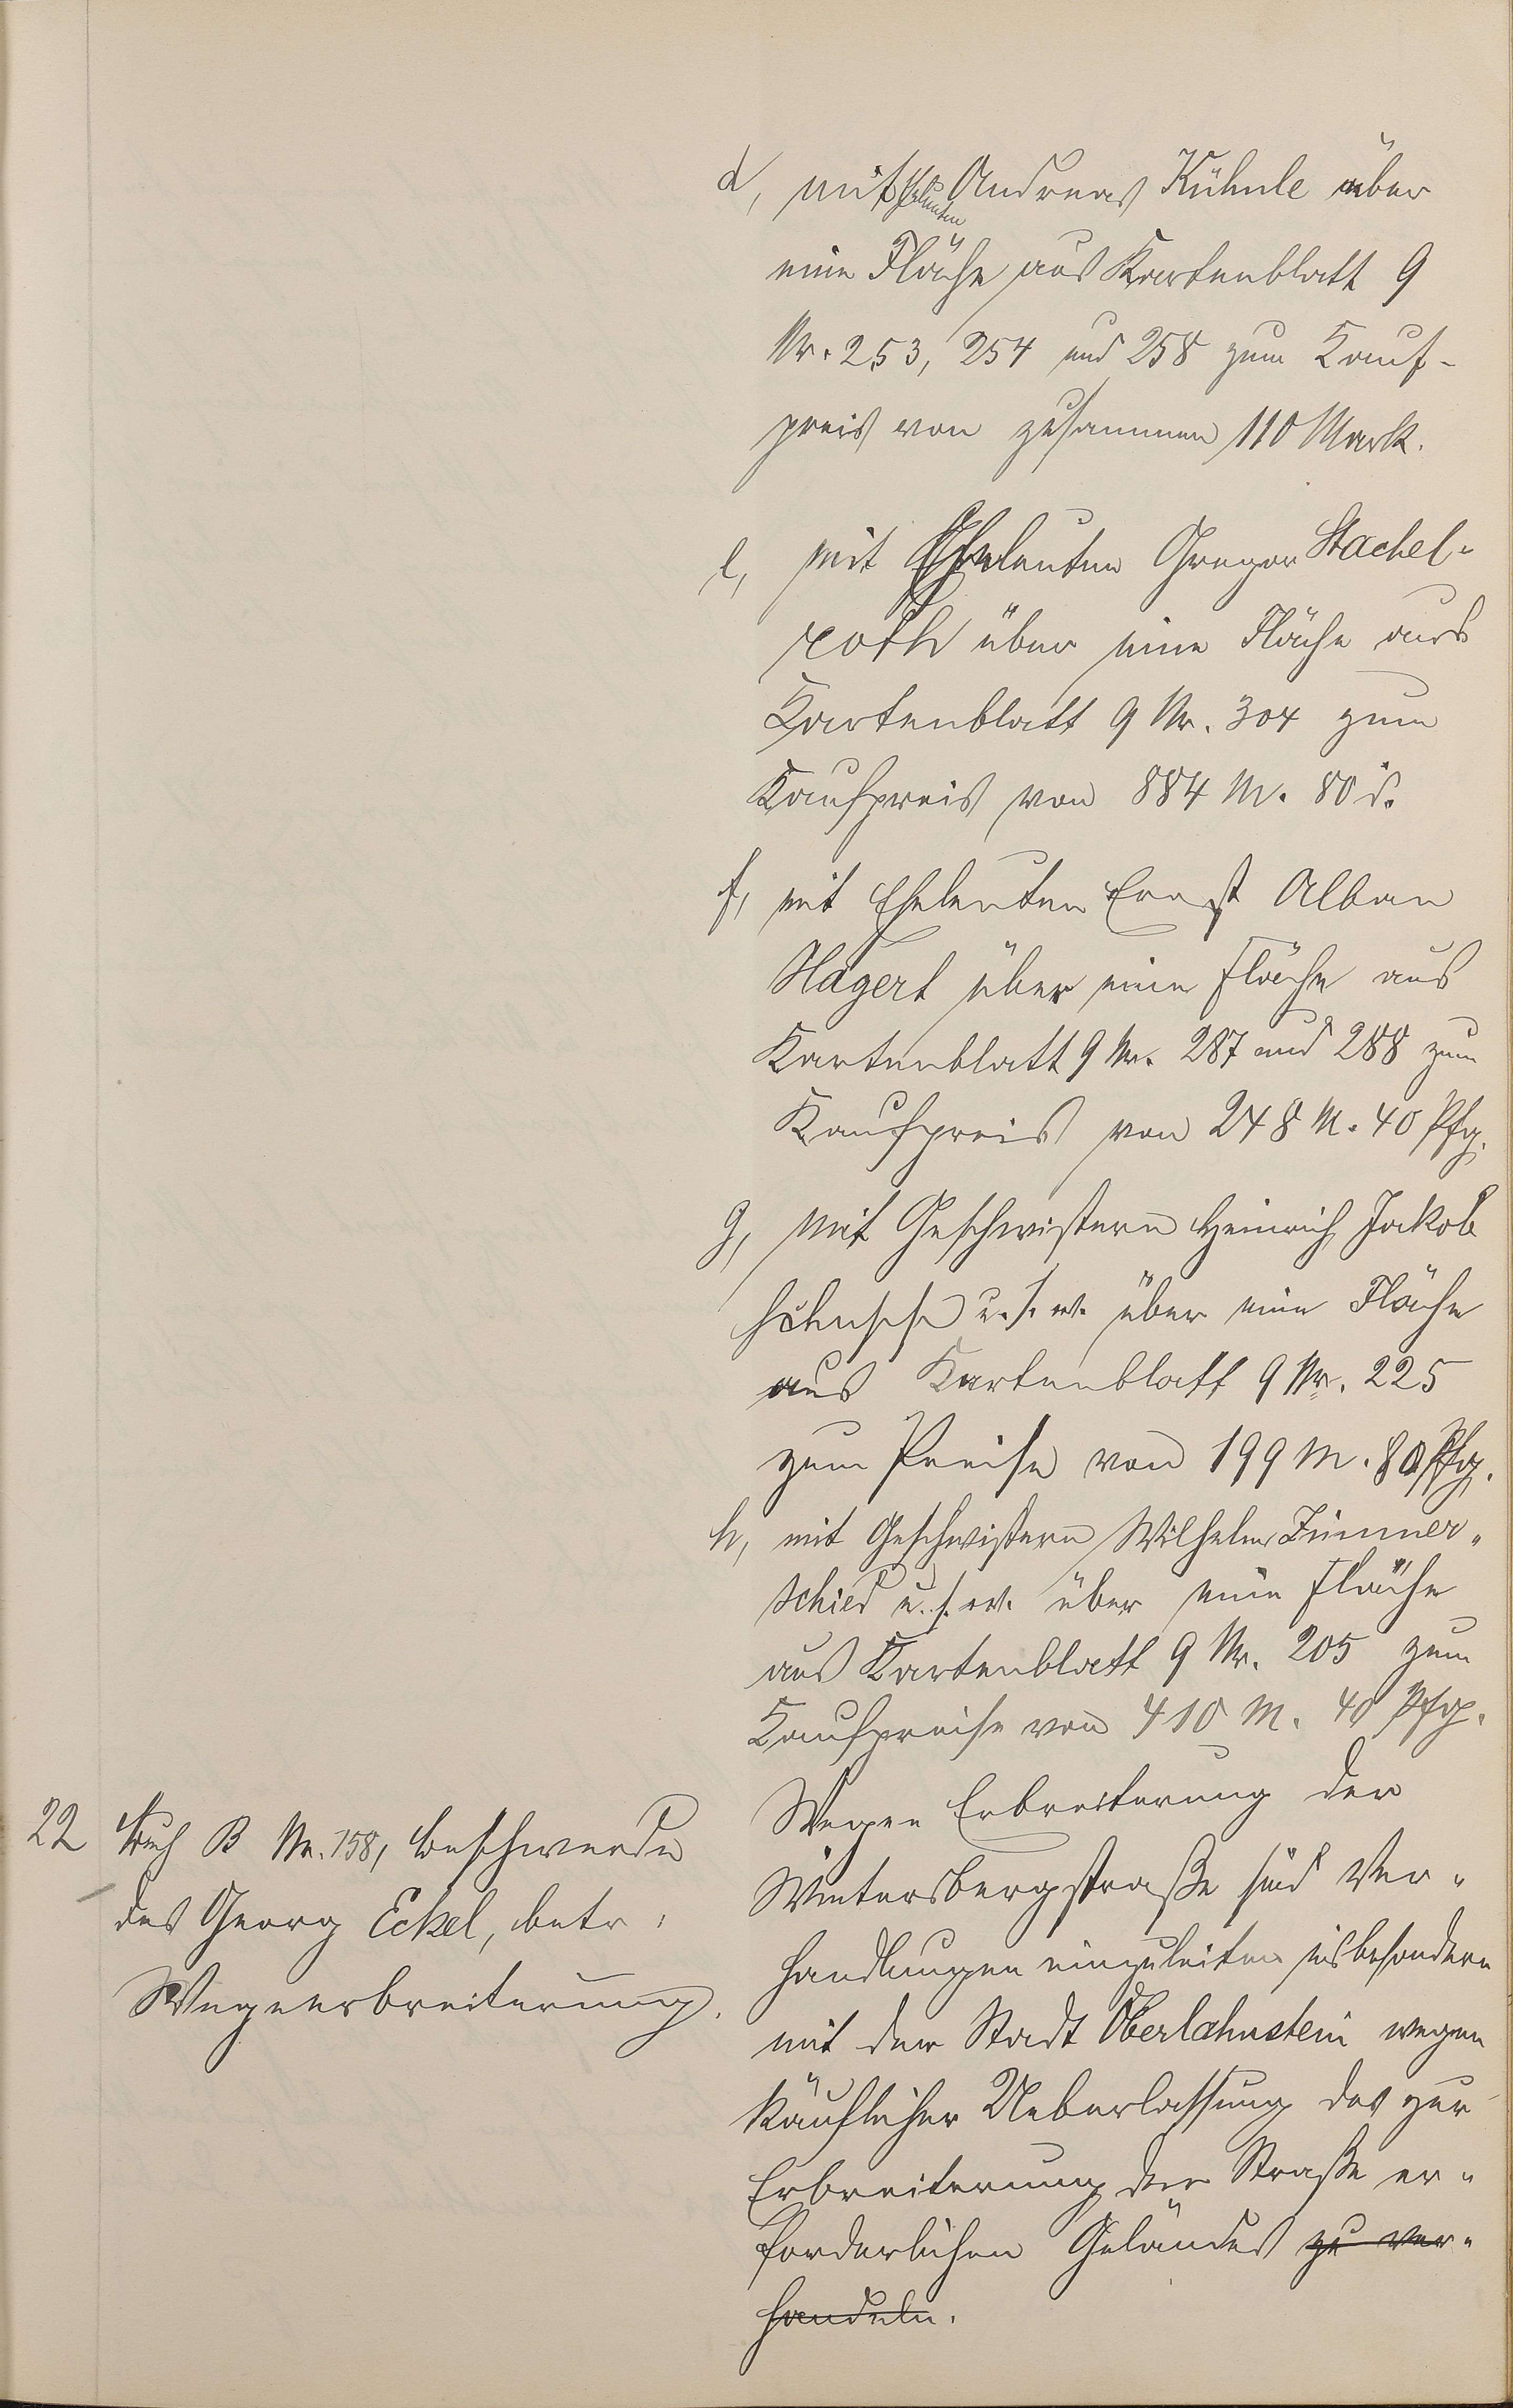 d, mit Eheleuten Andreas Kühnle über
eine Fläche aus Kartenblatt 9
Nr. 253, 254 und 258 zum Kauf-
preis von zusammen 110 Mark.
e, mit Eheleuten Gregor Stachel-
roth über eine Fläche aus
Kartenblatt 9 Nr. 304 zum
Kaufpreis von 884 M. 80 d.
f, mit Eheleuten Ernst Alban
Hagert über eine Fläche aus
Kartenblatt 9 Nr. 287 und 288 zum
Kaufpreis von 248 M. 40 Pfg.
g, mit Geschwistern Heinrich Jakob
u. s. w. über eine Fläche
aus Kartenblatt 9 Nr. 225
zum Preise von 199 M. 80 Pfg.
h, mit Geschwistern Wilhelm Zimmer-
schied u. s. w. über eine Fläche
aus Kartenblatt 9 Nr. 205 zum
Kaufpreise von 410 M. 40 Pfg.
22 B Nr. 158, Beschwerde
des Georg Eckel, betr.
Wegeerbreiterung.
Wegen Erbreiterung der
Wintersbergstraße sind Ver-
handlungen einzuleiten insbesondere
mit der Stadt Oberlahnstein wegen
käuflicher Ueberlassung des zur
Erbreiterung der Straße er-
forderlichen Geländes zu ver-
handeln.